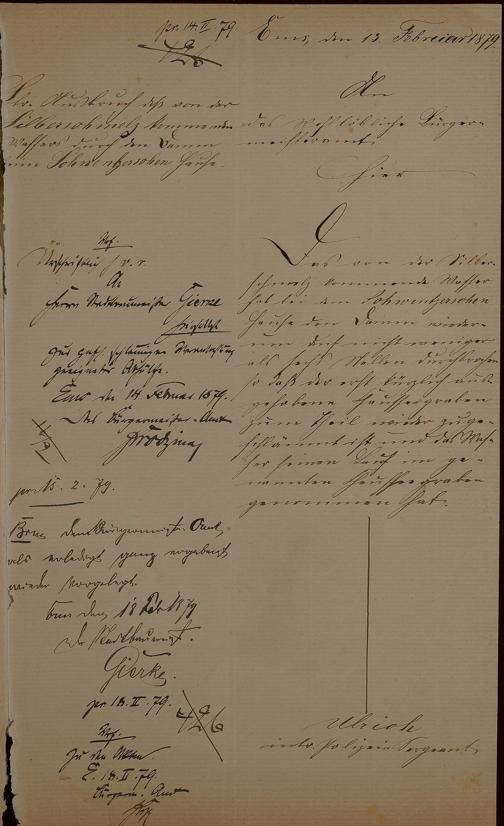 pr. 14. II 79.
426
Ems, den 13. Februar 1879.
Btr. Ausbruch des von der
Silberschmelz kommenden
Wassers durch den Damm
am Schwentzerschen Hause.
An
das Wohllöbliche Bürger-
meisteramt
hier
Das von der Silber-
schmelz kommende Wasser
hat bei dem Schwentzerschen
Hause den Damm wieder-
um auf nicht weniger
als sechs Stellen durchbrochen
so daß der erst kürzlich aus-
gehobene Chausseegraben
zum Theil wieder zuge-
schlämmt ist und das Was-
ser seinen Lauf im ge-
nannten Chausseegraben
genommen hat.
Ulrich
Polizei Sergeant
Urschriftlich
An
Herrn Stadtbaumeister Gierke
zur gef. schleunigen Veranlassung
geeigneter Abhülfe.
Ems den 14 Februar 1879.
Das Bürgermeister-Amt
pr. 15. 2. 79.
dem Bürgermstr. Amt,
als erledigt ganz ergebenst
wieder vorgelegt.
Ems den 18 Febr 1879
Gierke.
pr. 18. II. 79.
426
Zu den Akten.
E. 18. II. 79.
Bürgerm. Amt